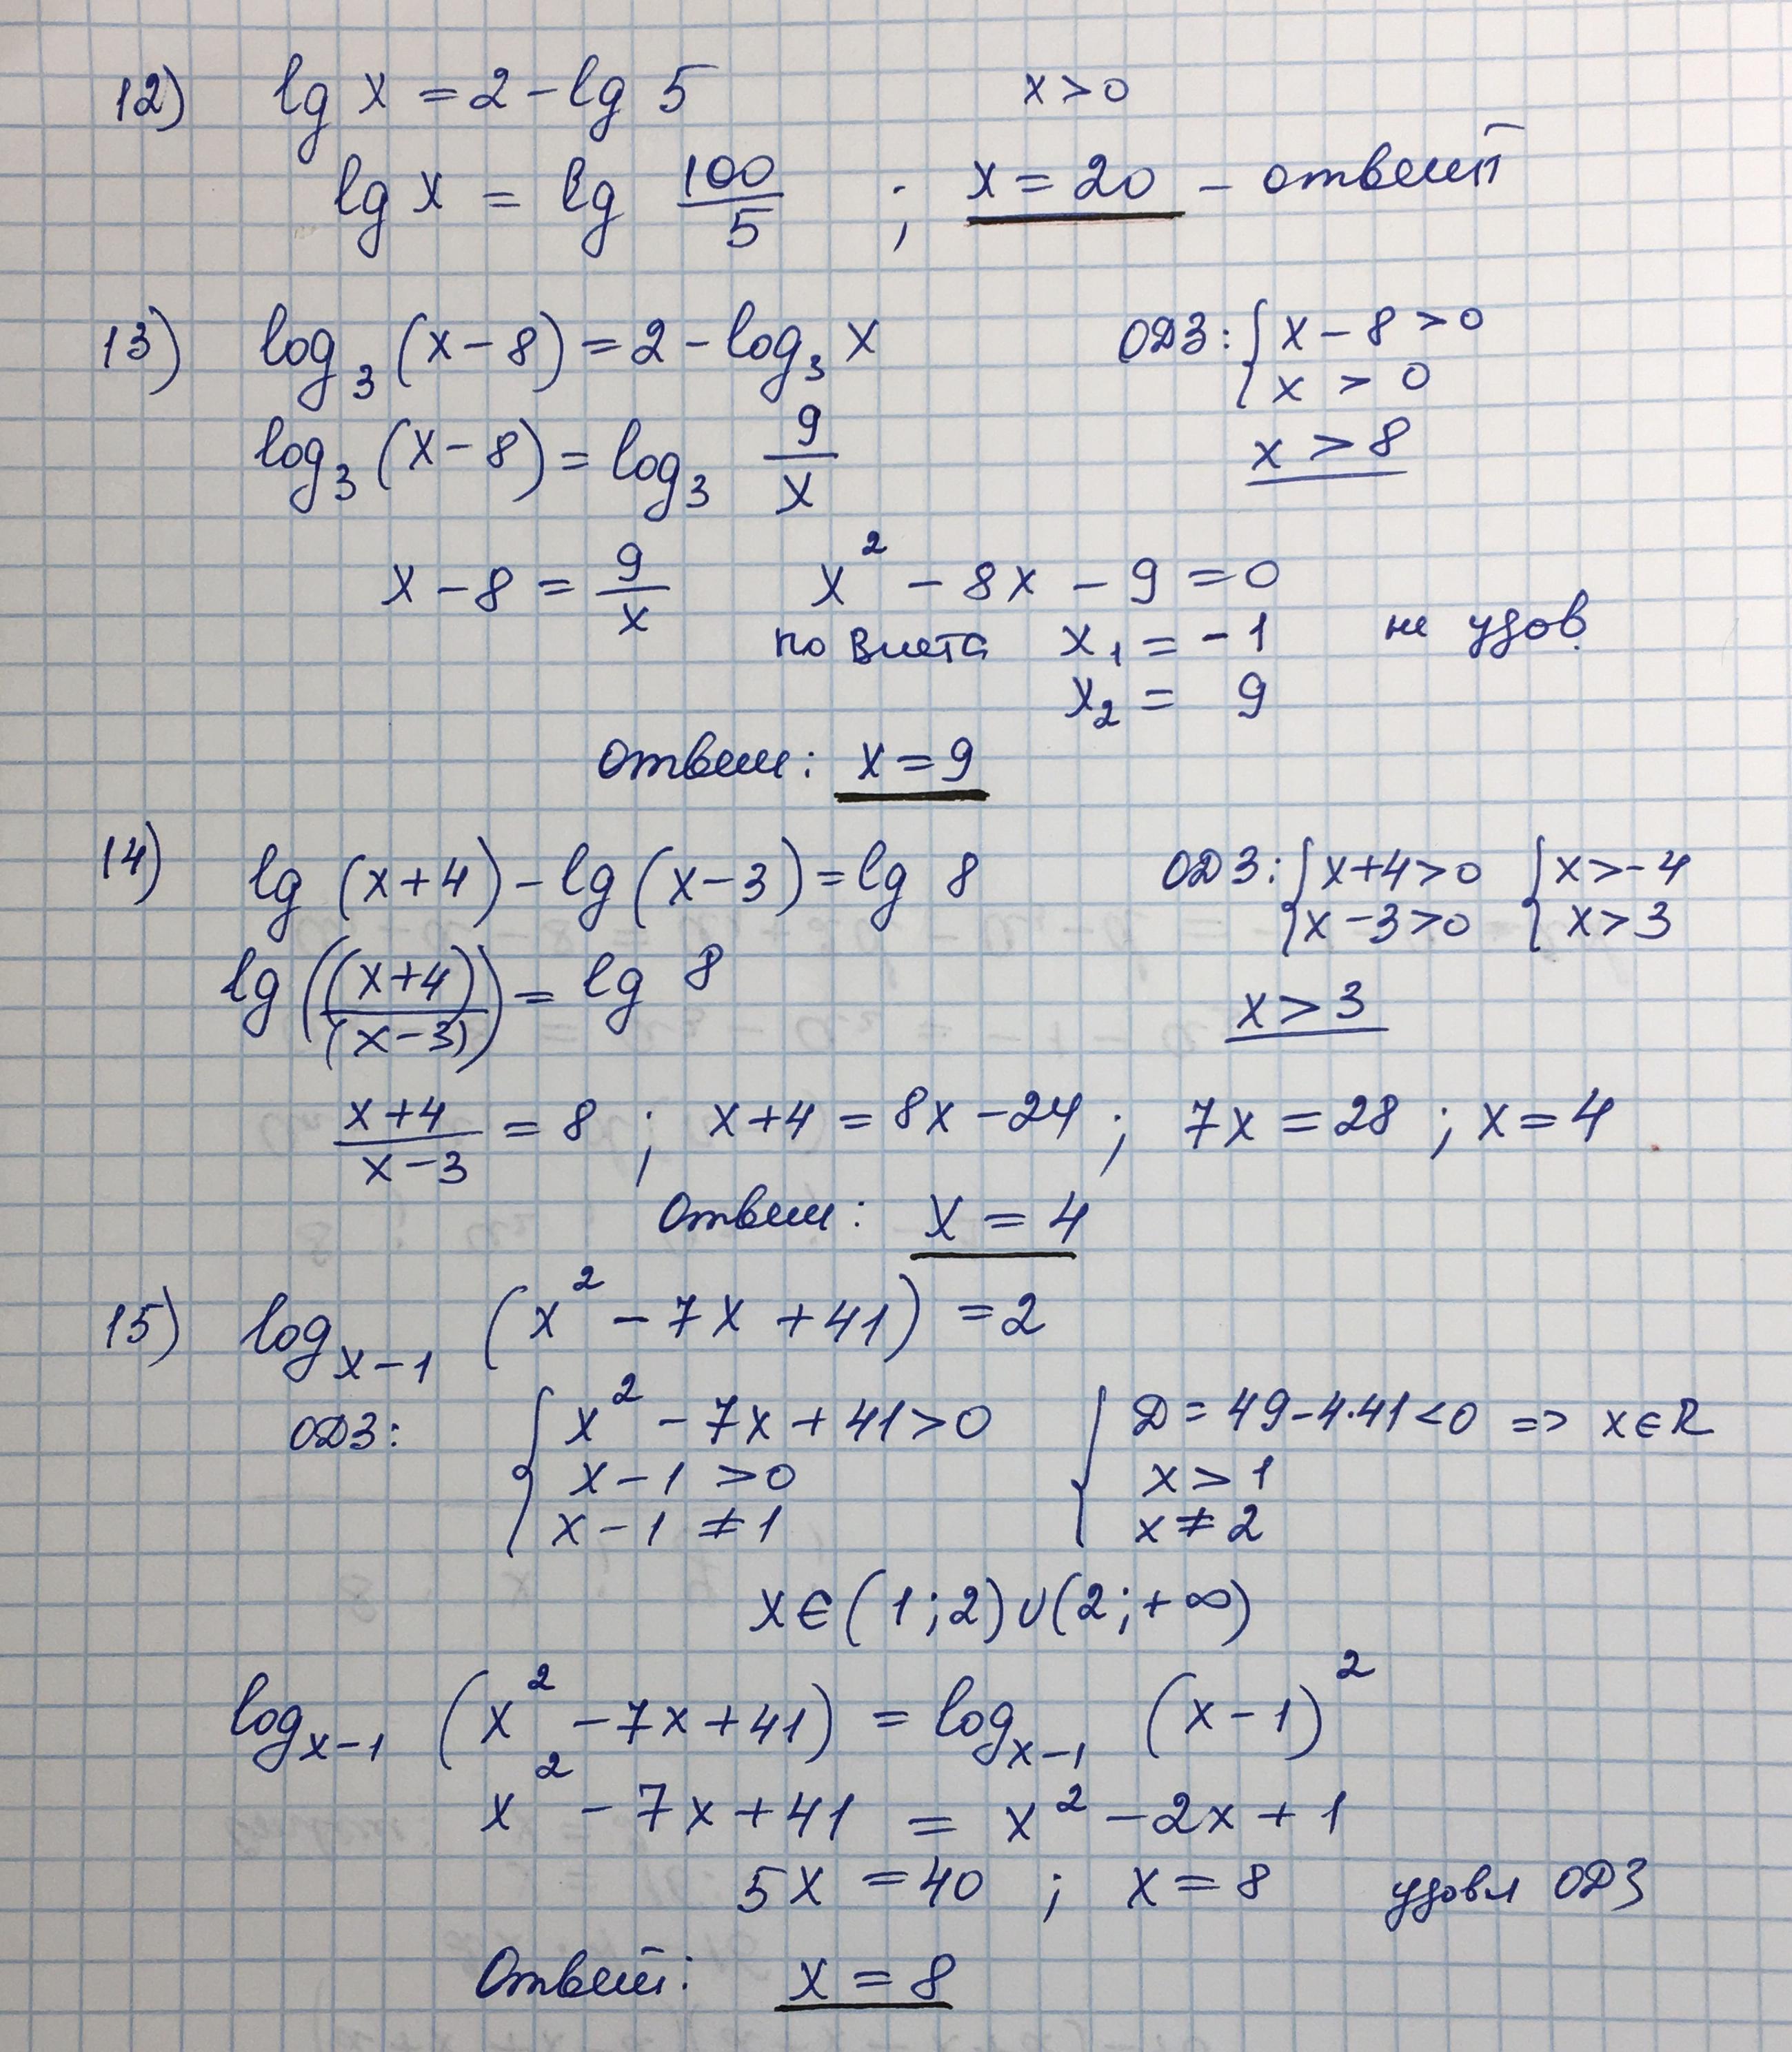 12) lg x = 2 - lg 5    x > 0
lg x = lg 100/5 ; x = 20 - ответ
13) log₃(x-8) = 2 - log₃ x    ОДЗ: { x - 8 > 0
x > 0
log₃(x-8) = log₃ 9/x    x > 8
x - 8 = 9/x    x² - 8x - 9 = 0
по Виета x₁ = -1 не удов.
x₂ = 9
Ответ: x = 9
14) lg (x+4) - lg(x-3) = lg 8    ОДЗ: { x+4>0 { x>-4
x-3>0 x>3
lg((x+4)/(x-3)) = lg 8    x > 3
x+4/x-3 = 8 ; x+4 = 8x-24 ; 7x = 28 ; x = 4
Ответ: x = 4
15) logₓ₋₁ (x² - 7x + 41) = 2
ОДЗ: { x² - 7x + 41 > 0 { D = 49-4·41<0 => x∈R
x - 1 > 0    x > 1
x - 1 ≠ 1    x ≠ 2
x ∈ (1;2)∪(2;+∞)
logₓ₋₁ (x² - 7x + 41) = logₓ₋₁ (x-1)²
x² - 7x + 41 = x² - 2x + 1
5x = 40 ; x = 8 удовл ОДЗ
Ответ: x = 8